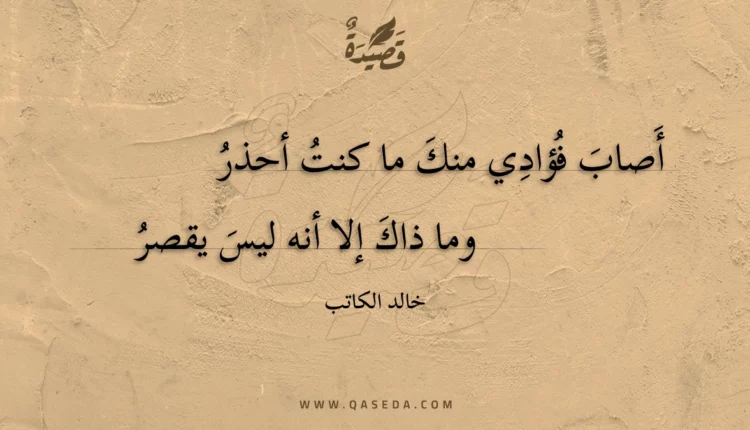 قَصِيدَةٌ
أَصابَ فُؤادِي منكَ ما كنتُ أحذرُ
وما ذاكَ إلا أنه ليسَ يقصرُ
خالد الكاتب
WWW.QASEDA.COM